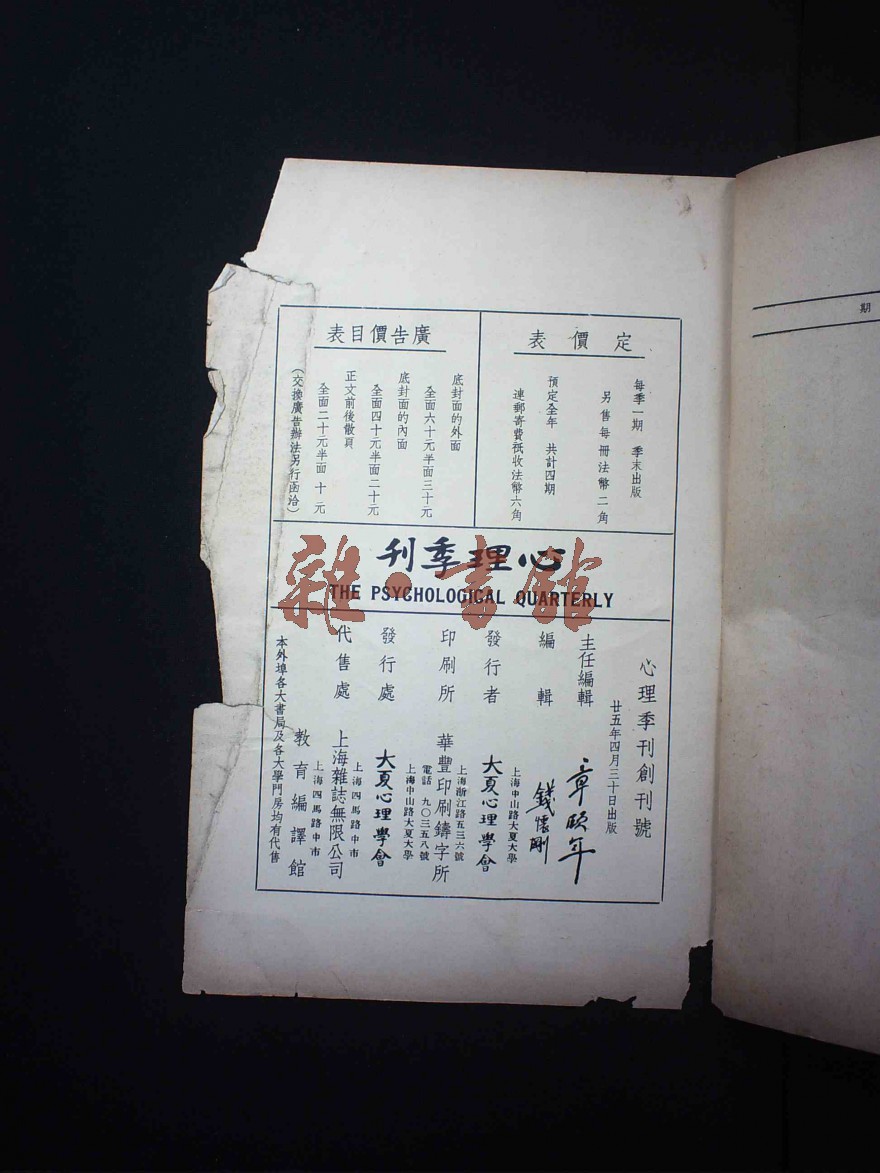 定價表
每季一期　季末出版
另售每冊法幣二角
預定全年　共計四期
連郵寄費祇收法幣六角
廣告價目表
底封面的外面
全面六十元半面三十元
底封面的內面
全面四十元半面二十元
正文前後散頁
全面二十元半面　十元
（交換廣告辦法另行函洽）
心理季刊
THE PSYCHOLOGICAL QUARTERLY
心理季刊創刊號
廿五年四月三十日出版
主任編輯　章頤年
編輯　錢懷剛
上海中山路大夏大學
發行者　大夏心理學會
上海浙江路五三六號
印刷所　華豐印刷鑄字所
電話　九〇三五八號
上海中山路大夏大學
發行處　大夏心理學會
上海四馬路中市
代售處　上海雜誌無限公司
上海四馬路中市
教育編譯館
本外埠各大書局及各大學門房均有代售
期
雜·書館